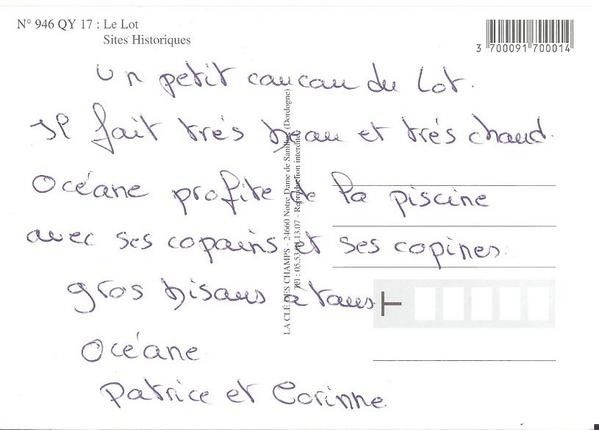 N° 946 QY 17 : Le Lot
Sites Historiques
3 700091 700014
un petit coucou du Lot.
Il fait très beau et très chaud.
Océane profite de la piscine
avec ses copains et ses copines.
gros bisous à tous
Océane
Patrice et Corinne
LA CLÉ DES CHAMPS - 24660 Notre Dame de Sanilhac (Dordogne)
Tél : 05.53. 13.07 - Reproduction interdite